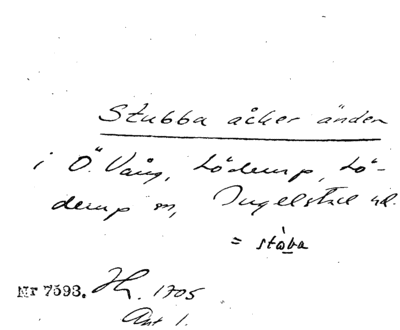 Stubba åcker änden
i Ö. Vång, Löderup, Lö-
derup sn, Ingelstad hd.
= stòba
Nr 7593. Hh. 1705
Ant 1.